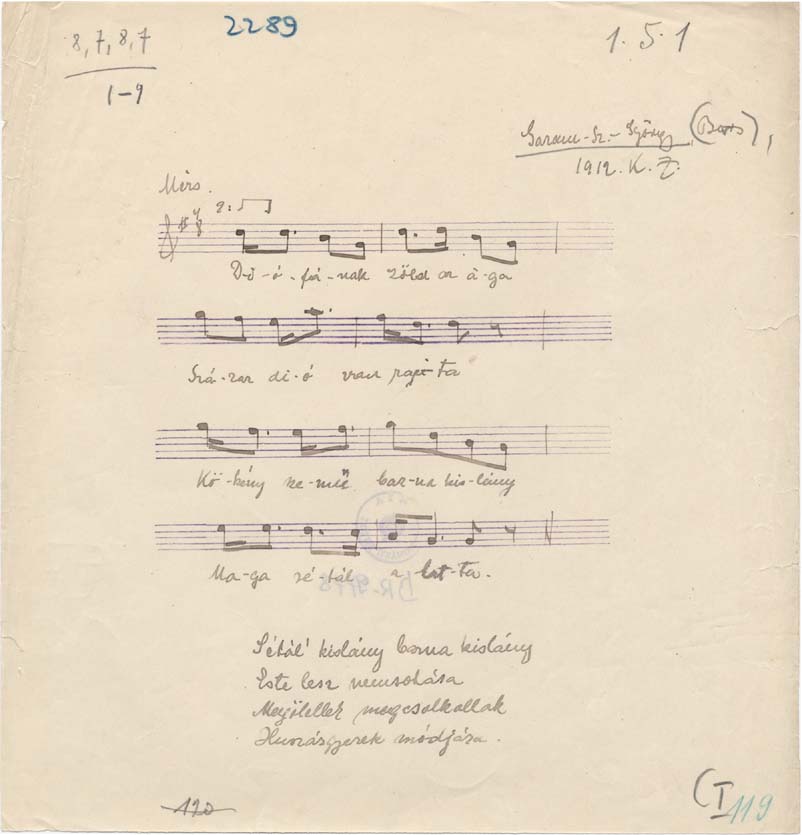 8, 7, 8, 7
1-9
2289
1. 5. 1
Garam-Sz.-György (Bars),
1912. K. Z.
Mérs.
2:
Di-ó-fá-nak zöld az á-ga
Szá-zan di-ó van rajt-ta
Kö-kény sze-mű bar-na kis-lány
Ma-ga sé-tál a-lat-ta.
BR-9775
Sétál' kislány barna kislány
Este lesz nemsokása
Megölellek megcsolkollak
Huszásgyerek módjása.
120
(I 119